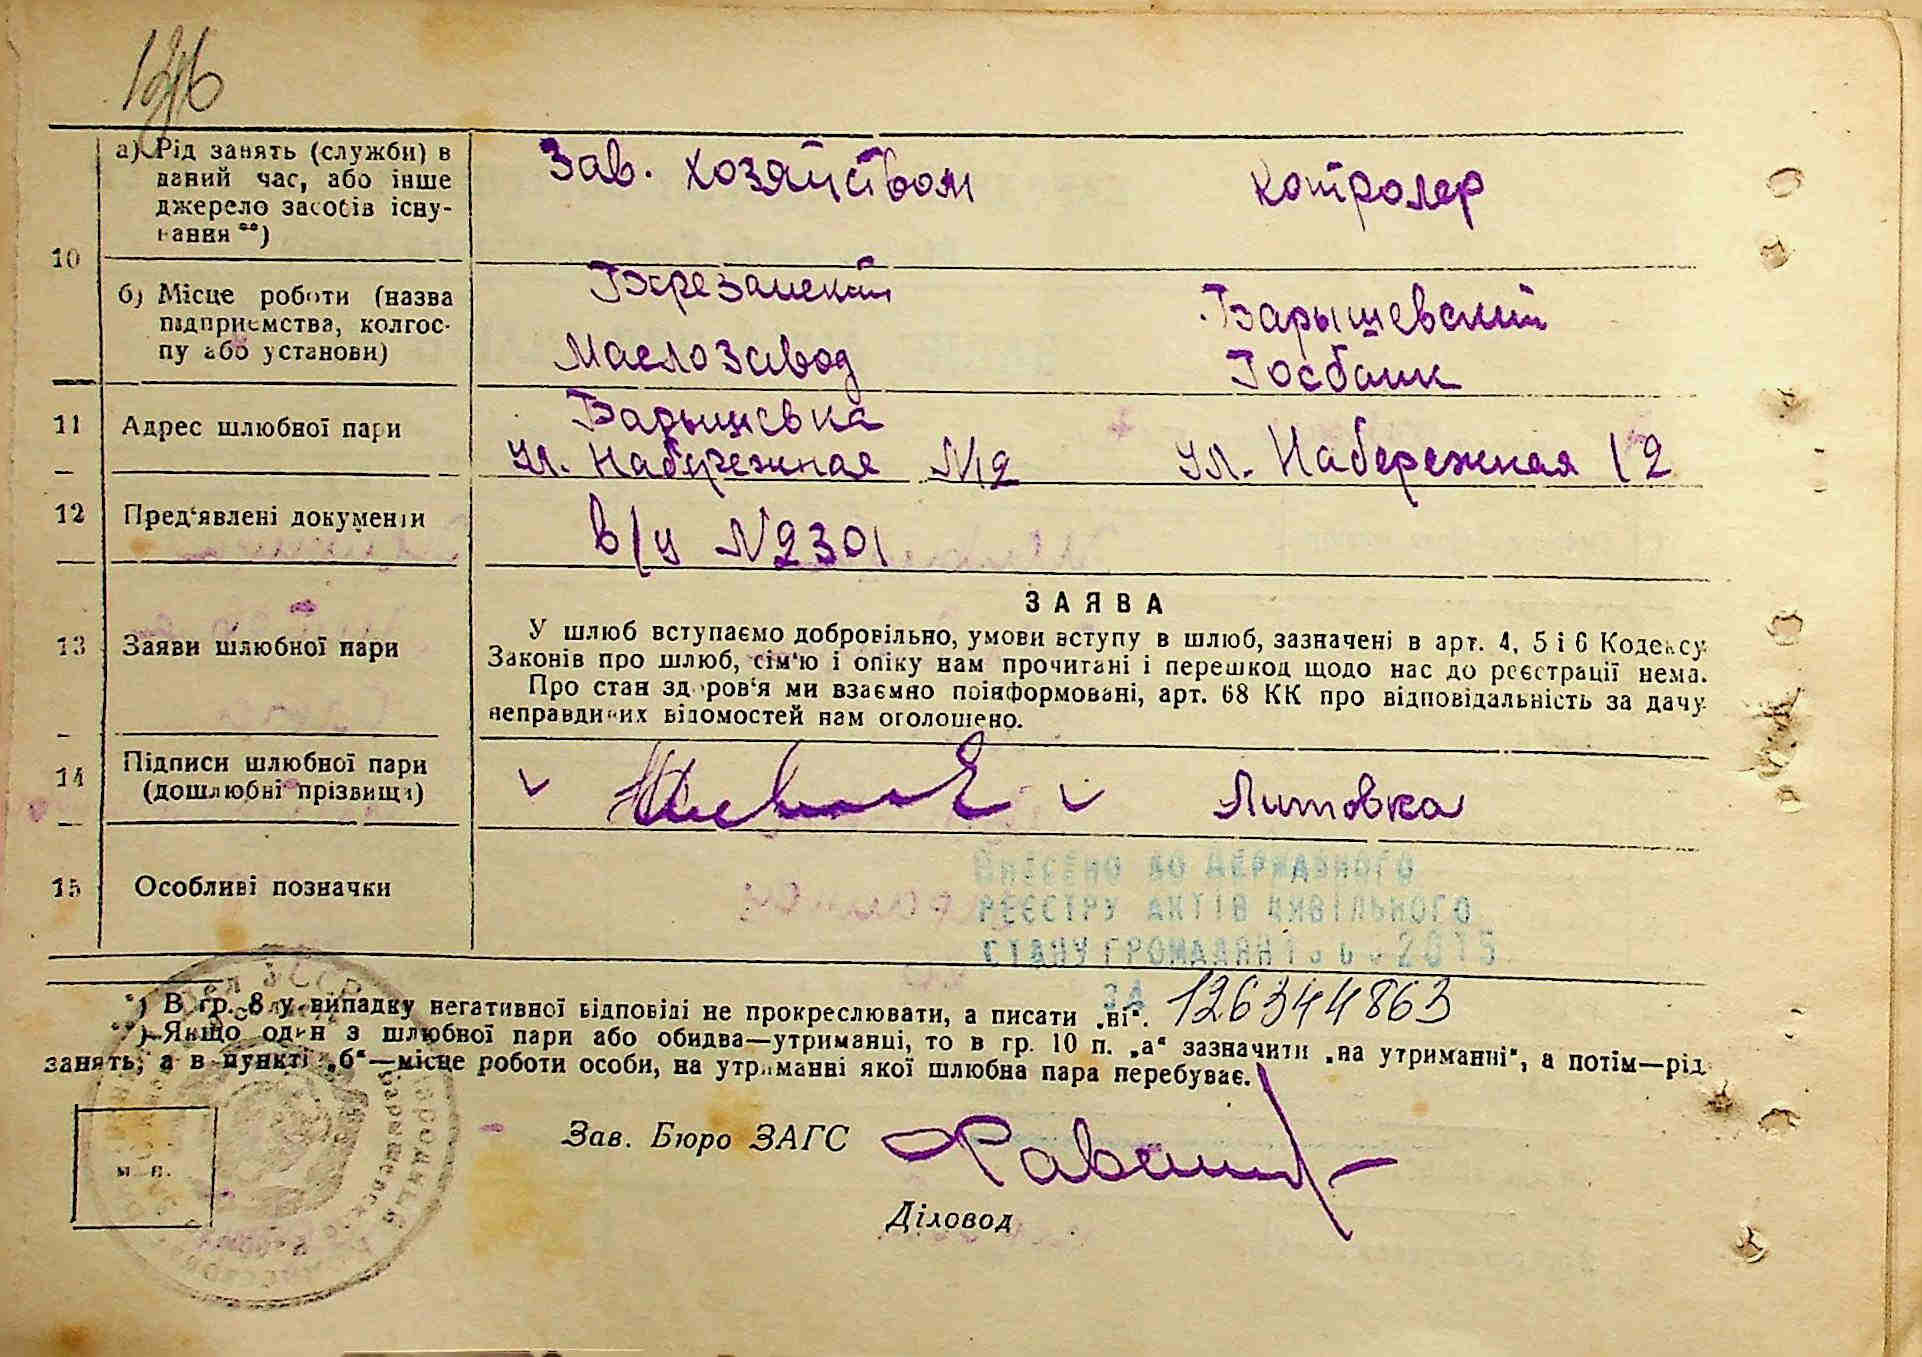 а) Рід занять (служби) в
даний час, або інше
джерело засобів існу-
вання **)
Зав. хозяйством
контролер
10
б) Місце роботи (назва
підприємства, колгос-
пу або установи)
Березанский
Маслозавод
Барышевский
Госбанк
11
Адрес шлюбної пари
Барышевка
ул. Набережная №12
ул. Набережная 12
12
Пред'явлені документи
в/у №2301
13
Заяви шлюбної пари
ЗАЯВА
У шлюб вступаємо добровільно, умови вступу в шлюб, зазначені в арт. 4, 5 і 6 Кодексу
Законів про шлюб, сім'ю і опіку нам прочитані і перешкод щодо нас до реєстрації нема.
Про стан здоров'я ми взаємно поінформовані, арт. 68 КК про відповідальність за дачу
неправдивих відомостей нам оголошено.
14
Підписи шлюбної пари
(дошлюбні прізвища)
Литовка
15
Особливі позначки
Внесено до Державного
реєстру актів цивільного
стану громадян 2015
за 126344863
*) В гр. 8 у випадку негативної відповіді не прокреслювати, а писати „ні“.
**) Якщо один з шлюбної пари або обидва—утриманці, то в гр. 10 п. „а“ зазначити „на утриманні“, а потім—рід
занять, а в пункті „б“—місце роботи особи, на утриманні якої шлюбна пара перебуває.
м. п.
Зав. Бюро ЗАГС
Діловод